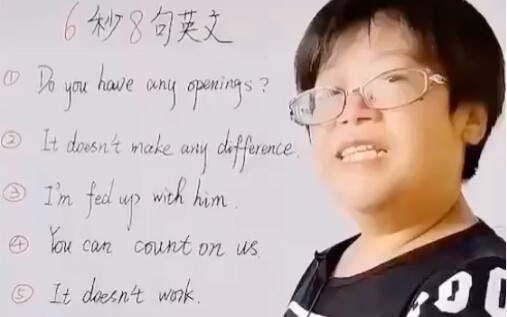 6秒8句英文
① Do you have any openings?
② It doesn't make any difference.
③ I'm fed up with him.
④ You can count on us.
⑤ It doesn't work.